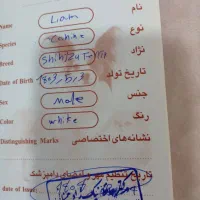 Name Liam نام
Species Canine نوع
Breed Shih Tzu Terrier نژاد
Date of Birth تاریخ تولد
Sex Male جنس
Color white رنگ
Distinguishing Marks نشانه‌های اختصاصی
date of issue تاریخ